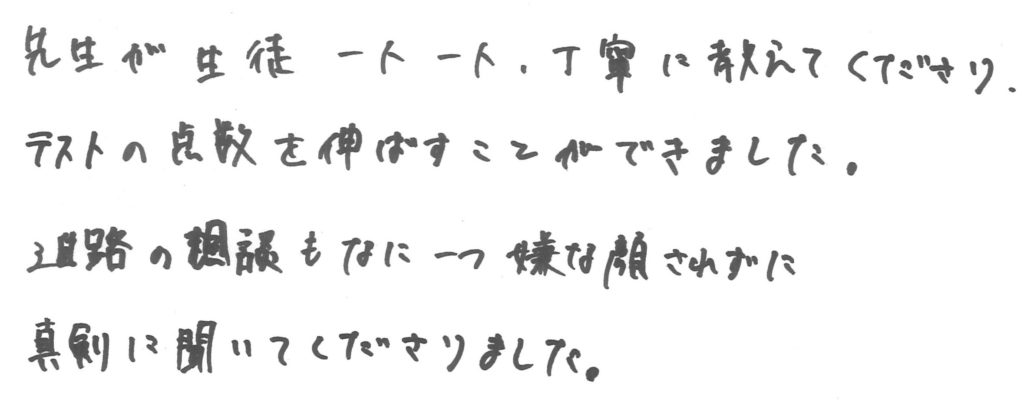 先生が生徒一人一人、丁寧に教えてくださり、
テストの点数を伸ばすことができました。
進路の相談もなに一つ嫌な顔されずに
真剣に聞いてくださりました。